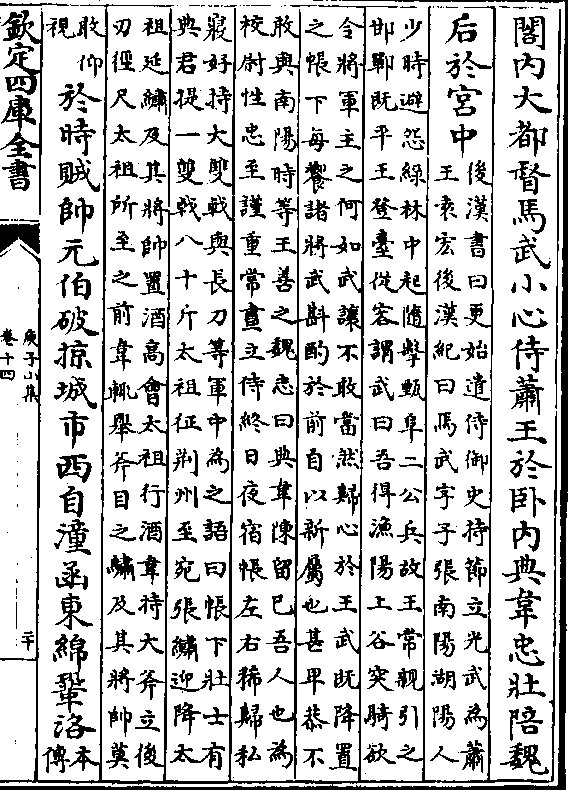 閤内大都督馬武小心侍蕭王於卧内典韋忠壯陪魏
后於宮中
後漢書曰更始遣侍御史持節立光武為蕭
王袁宏後漢紀曰馬武字子張南陽湖陽人
少時避怨綠林中起隨擊甄阜二公兵故王常親引之
邯鄲既平王登臺從容謂武曰吾得漁陽上谷突騎欲
令將軍主之何如武讓不敢當然歸心於王武既降置
之帳下每饗諸將武斟酌於前自以新屬也甚卑恭不
敢與南陽時等王善之魏志曰典韋陳留已吾人也為
校尉性忠至謹重常晝立侍終日夜宿帳左右稀歸私
寢好持大雙戟與長刀等軍中為之語曰帳下壯士有
典君提一雙戟八十斤太祖征荆州至宛張繡迎降太
祖延繡及其將帥置酒高會太祖行酒韋持大斧立後
刃徑尺太祖所至之前韋輒舉斧目之繡及其將帥莫
敢仰
視
於時賊帥元伯破掠城市西自潼函東綿鞏洛
本
傳
欽定四庫全書
庾子山集
卷十四
二十